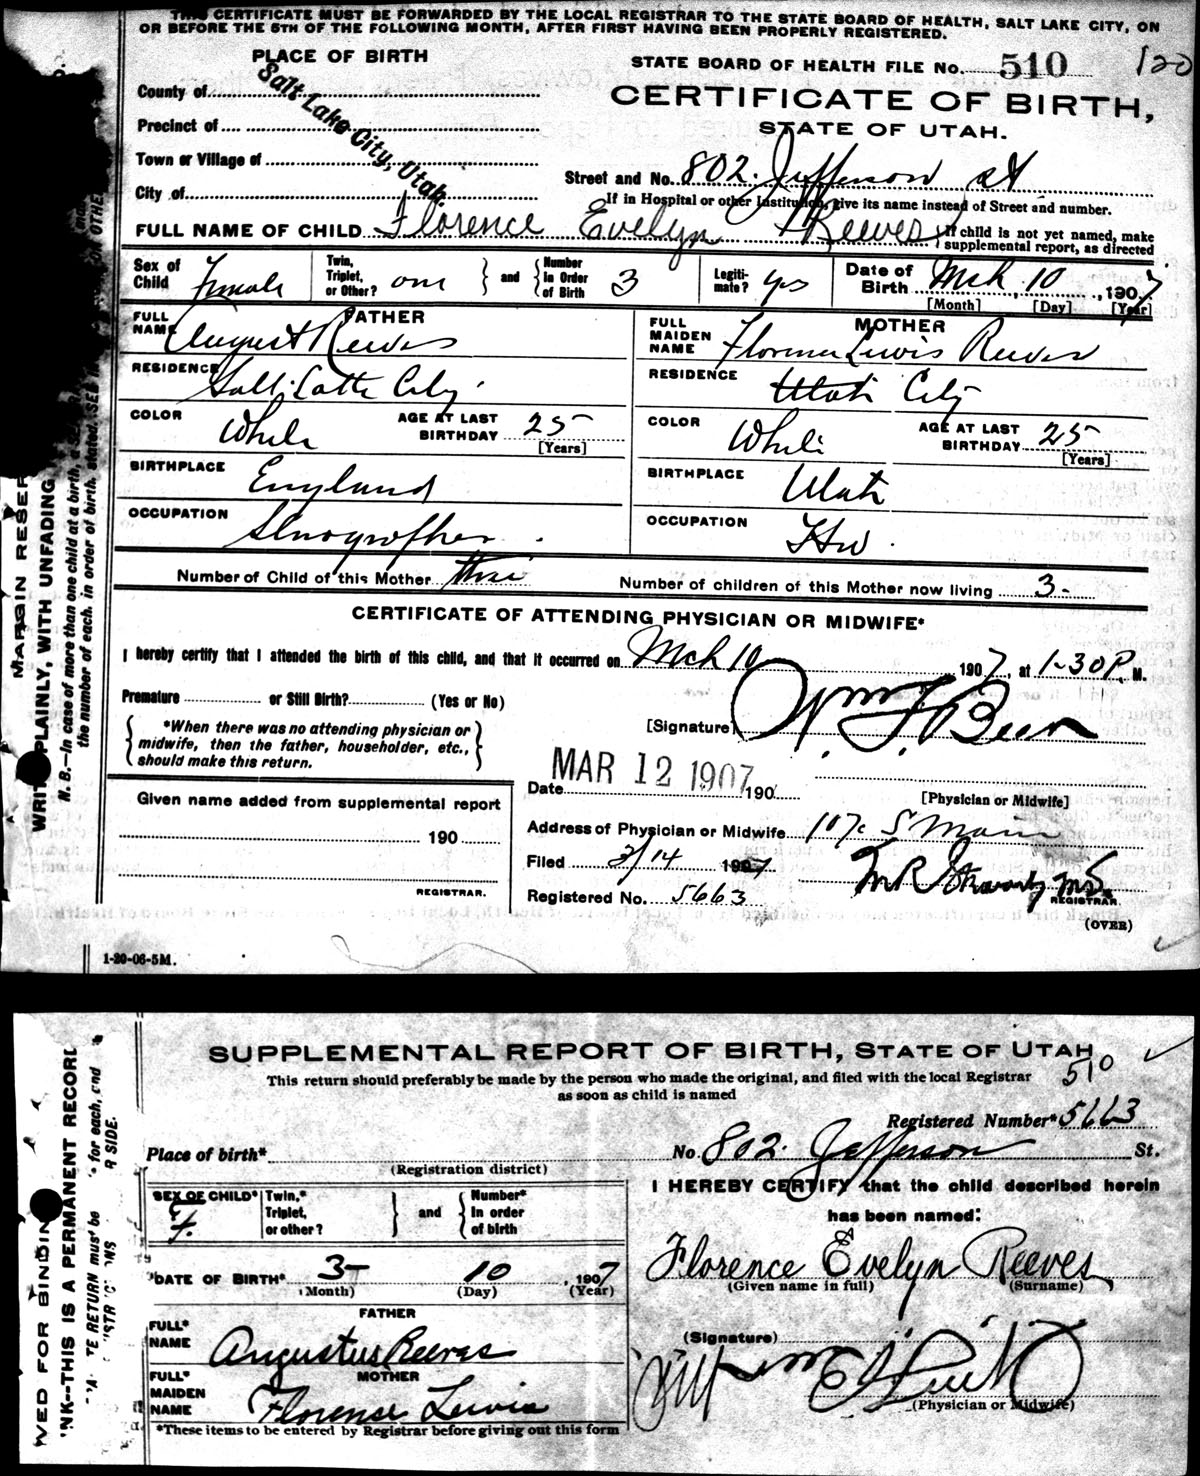 THIS CERTIFICATE MUST BE FORWARDED BY THE LOCAL REGISTRAR TO THE STATE BOARD OF HEALTH, SALT LAKE CITY, ON
OR BEFORE THE 5TH OF THE FOLLOWING MONTH, AFTER FIRST HAVING BEEN PROPERLY REGISTERED.
PLACE OF BIRTH
STATE BOARD OF HEALTH FILE No. 510
120
County of
Salt Lake City, Utah.
CERTIFICATE OF BIRTH,
Precinct of
STATE OF UTAH.
Town or Village of
Street and No. 802. Jefferson st
City of
If in Hospital or other Institution, give its name instead of Street and number.
FULL NAME OF CHILD Florence Evelyn Reeves
If child is not yet named, make
supplemental report, as directed
Sex of Child Female
Twin, Triplet, or Other? one and Number In Order of Birth 3
Legitimate? yes
Date of Birth Mch 10, 1907
[Month] [Day] [Year]
FATHER
FULL NAME August Reeves
RESIDENCE Salt Lake City
COLOR White
AGE AT LAST BIRTHDAY 25
[Years]
BIRTHPLACE England
OCCUPATION
MOTHER
FULL MAIDEN NAME Florence Lewis Reeves
RESIDENCE Utah City
COLOR White
AGE AT LAST BIRTHDAY 25
[Years]
BIRTHPLACE Utah
OCCUPATION Hw
Number of Child of this Mother three
Number of children of this Mother now living 3-
CERTIFICATE OF ATTENDING PHYSICIAN OR MIDWIFE*
I hereby certify that I attended the birth of this child, and that it occurred on Mch 10 1907, at 1-30 P. M.
Premature or Still Birth? (Yes or No)
*When there was no attending physician or
midwife, then the father, householder, etc.,
should make this return.
[Signature] Wm F. Beer
Date MAR 12 1907 190
[Physician or Midwife]
Given name added from supplemental report
190
REGISTRAR.
Address of Physician or Midwife S Main
Filed 3/14 1907
REGISTRAR.
Registered No. 5663
(OVER)
1-20-06-5M.
MARGIN RESER
WRITE PLAINLY, WITH UNFADING
N. B.—In case of more than one child at a birth, a
the number of each, in order of birth, stated. SEE
SUPPLEMENTAL REPORT OF BIRTH, STATE OF UTAH
510
This return should preferably be made by the person who made the original, and filed with the local Registrar
as soon as child is named
Registered Number* 5663
Place of birth*
(Registration district)
No. 802. Jefferson St.
SEX OF CHILD* F.
Twin,* Triplet, or other? and Number* In order of birth
I HEREBY CERTIFY that the child described herein
has been named:
DATE OF BIRTH* 3- 10, 1907
(Month) (Day) (Year)
Florence Evelyn Reeves
(Given name in full) (Surname)
FATHER
FULL* NAME Augustus Reeves
MOTHER
FULL* MAIDEN NAME Florence Lewis
(Signature)
(Physician or Midwife)
*These items to be entered by Registrar before giving out this form
WED FOR BINDIN
INK--THIS IS A PERMANENT RECORD
TE RETURN must be for each, and
R SIDE.